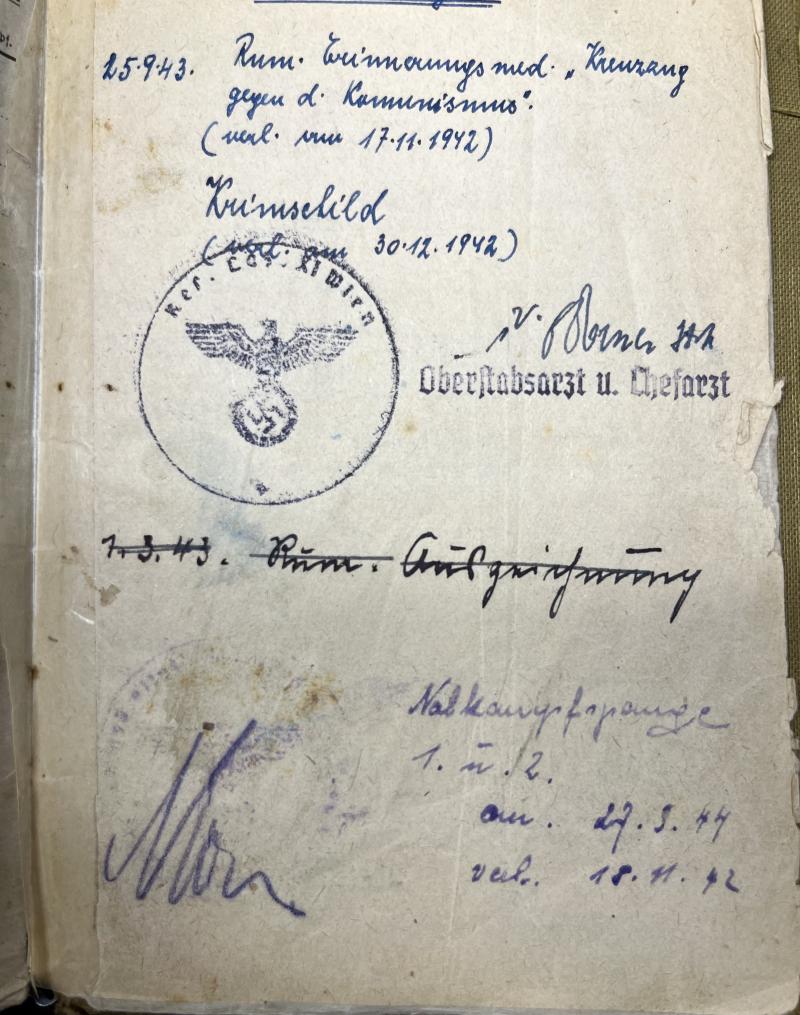 25.9.43. Rum. Erinnerungsmed. „Kreuzzug
gegen d. Komunismus".
(verl. am 17.11.1942)
Krimschild
(verl. am 30.12.1942)
Res. Laz. XI Wien
Oberstabsarzt u. Chefarzt
1.3.43. Rum. Auszeichnung
Nahkampfspange
1. u. 2.
am. 27.3.44
verl. 18.11.42